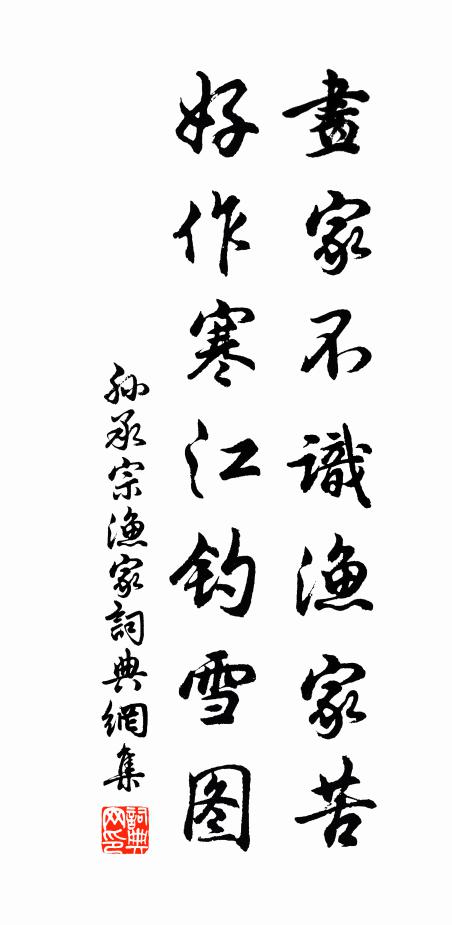 畫家不識漁家苦
好作寒江钓雪图
孙承宗渔家詞典網集
詞典网印